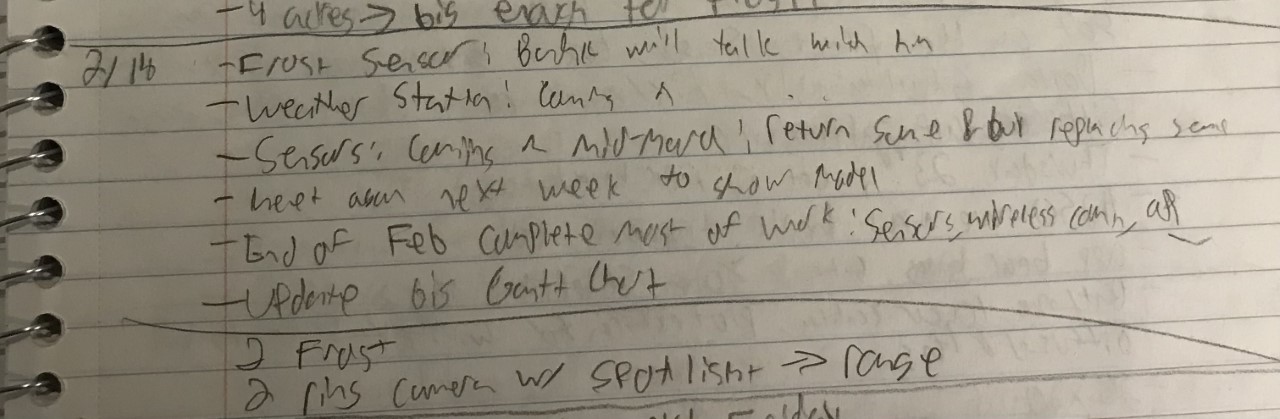 - 4 acres → big enough for
2/16 - Frost Sensor: will talk with him
- Weather Station: Coming
- Sensors: Coming in mid-March; return some & but replacing some
- Meet again next week to show Model
- End of Feb Complete most of work: Sensors, wireless comm,
- Update big Gantt Chart
2 Frost
2 ring camera w/ spotlight ⇒ range